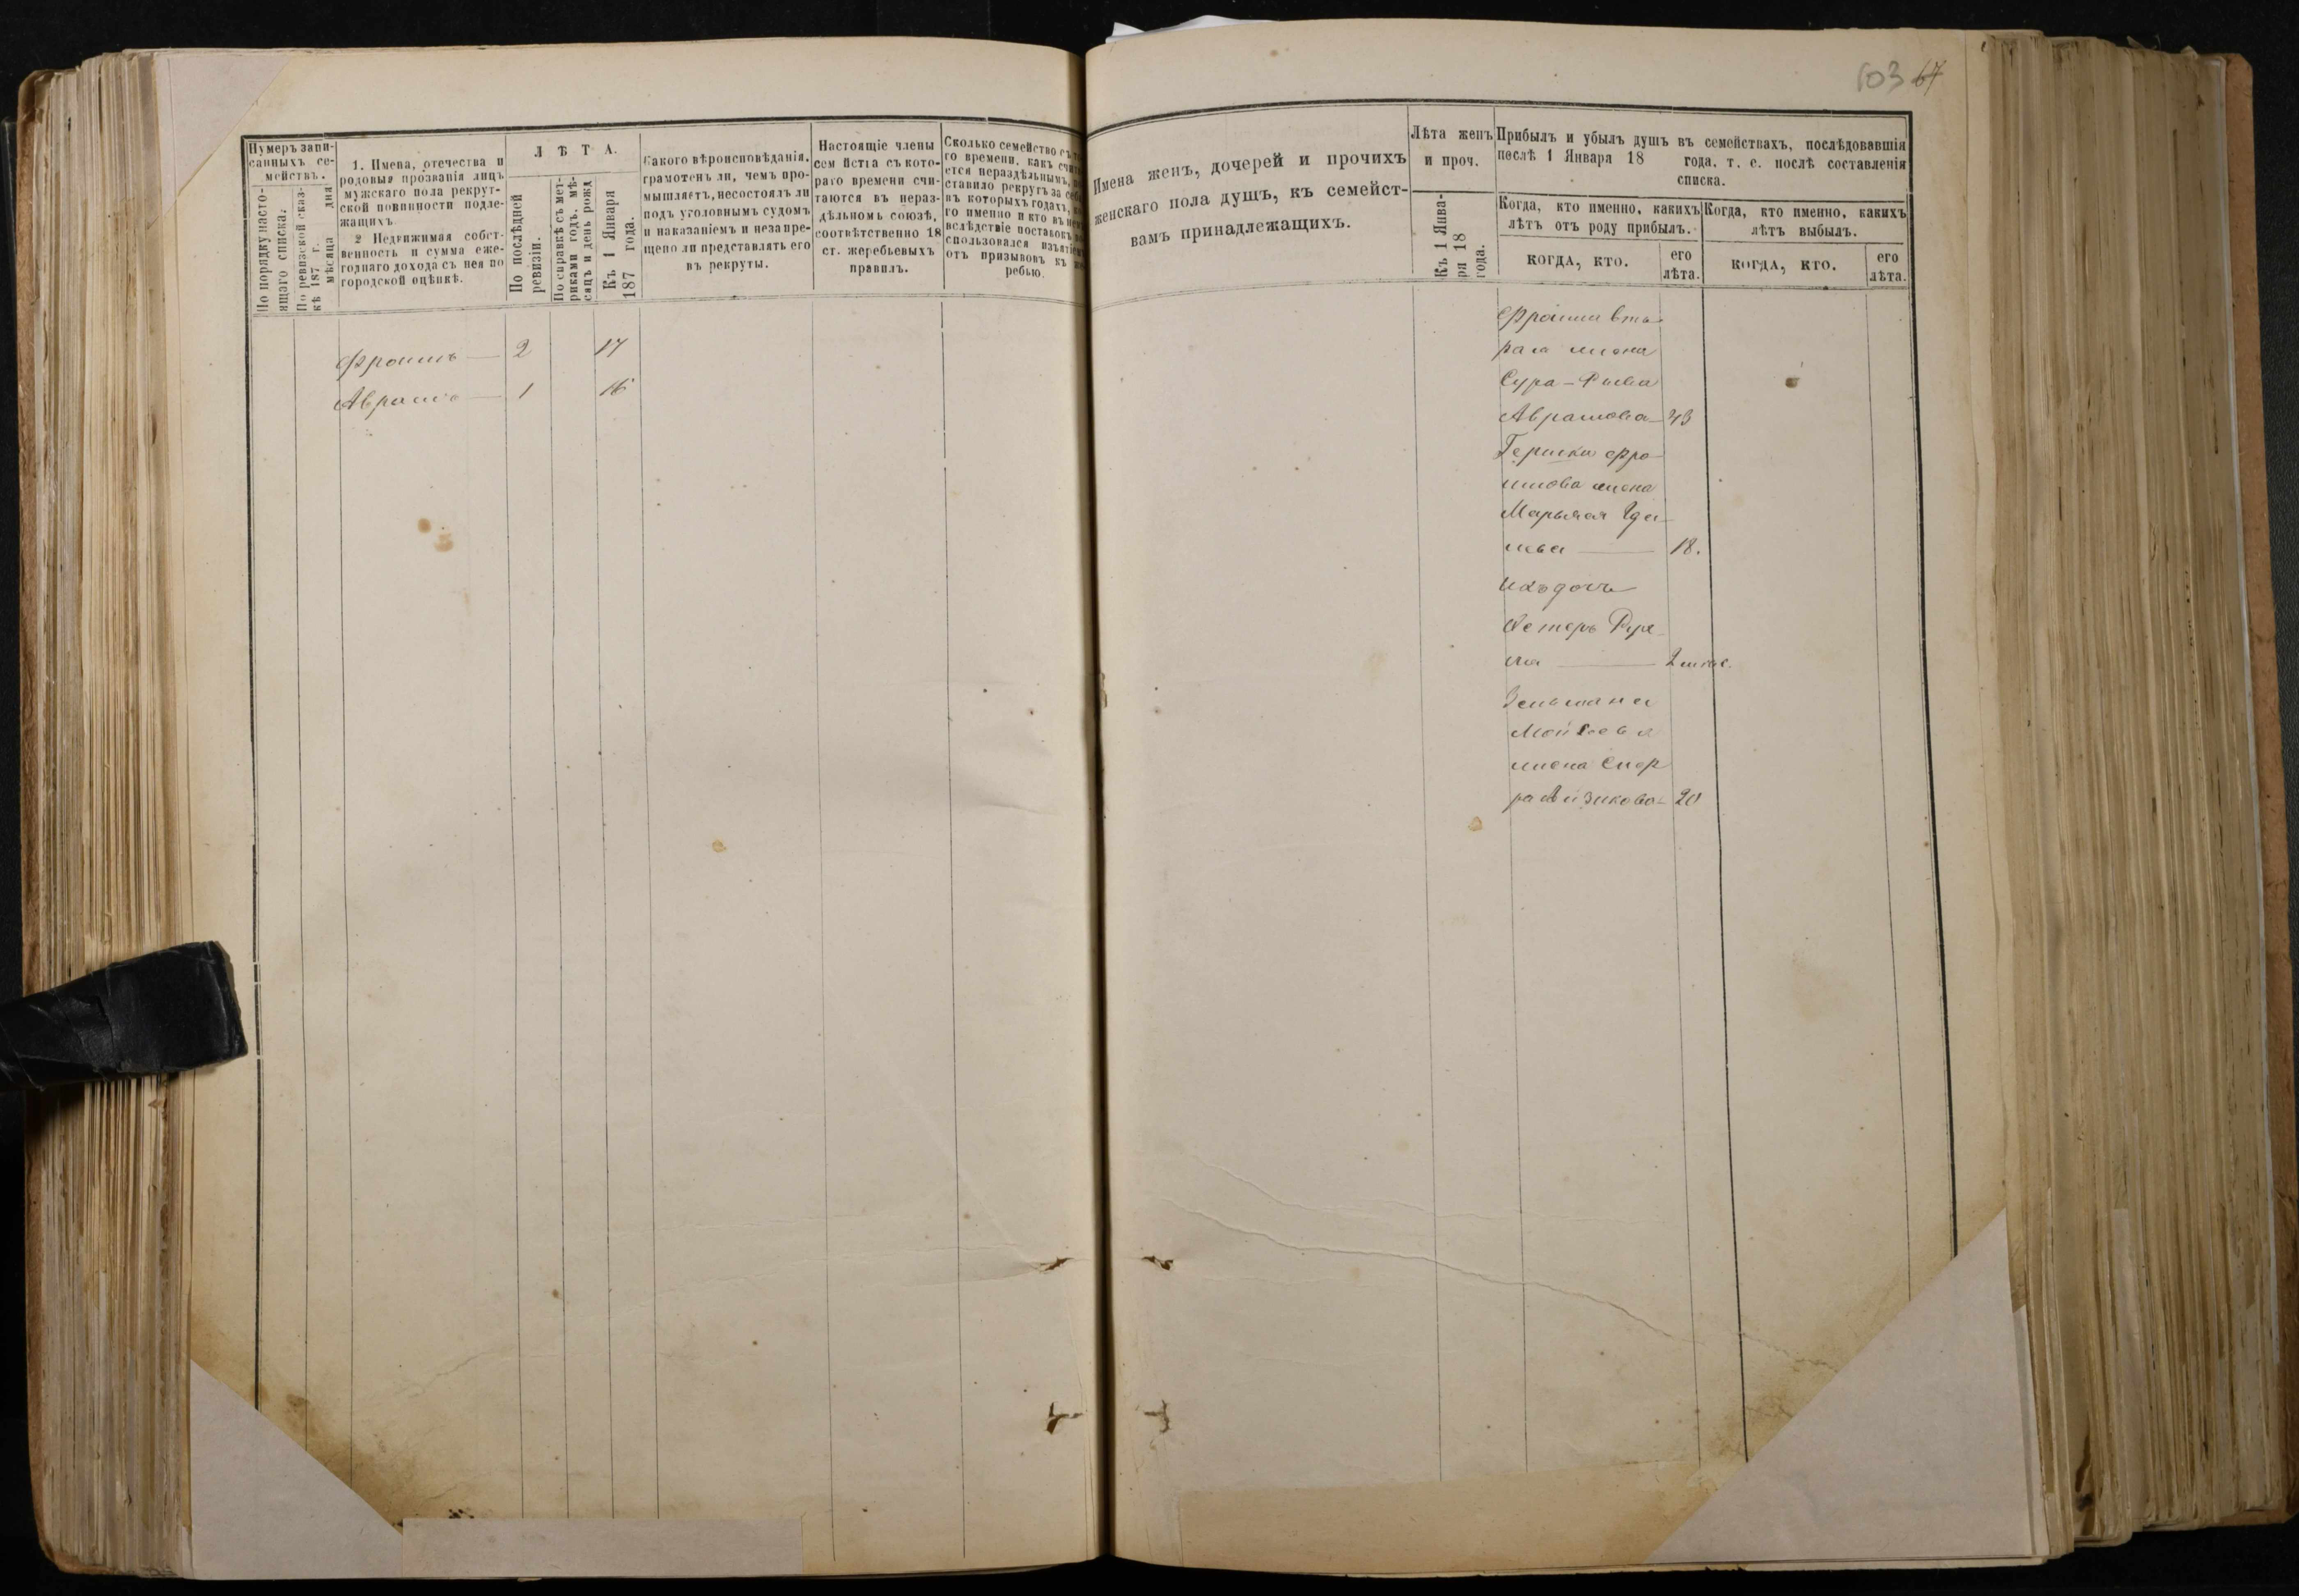 603 67
Нумеръ запи-
санныхъ се-
мействъ.
По порядку насто-
ящаго списка.
По ревизской сказ-
кѣ 187 г.
мѣсяца дня
1. Имена, отечества и
родовыя прозванія лицъ
мужскаго пола рекрут-
ской повинности подле-
жащихъ
2 Недвижимая собст-
венность и сумма еже-
годнаго дохода съ нея по
городской оцѣнкѣ.
ЛѢТА.
По послѣдней
ревизіи.
По справкѣ съ мет-
риками годъ, мѣ-
сяцъ и день рожд
Къ 1 Января
187 года.
Какого вѣроисповѣданія,
грамотенъ ли, чемъ про-
мышляетъ, несостоялъ ли
подъ уголовнымъ судомъ
и наказаніемъ и незапре-
щено ли представлять его
въ рекруты.
Настоящіе члены
сем йства съ кото-
раго времени счи-
таются въ нераз-
дѣльномъ союзѣ,
соотвѣтственно 18
ст. жеребьевыхъ
правилъ.
Сколько семейство съ
го времени, какъ счит
ется нераздѣльнымъ,
ставило рекрутъ за
въ которыхъ годахъ,
го именно и кто въ
вслѣдствіе поставокъ
спользовался изъятіе
отъ призывовъ къ
ребью.
Фроимъ — 2 17
Аврамъ — 1 16
Имена женъ, дочерей и прочихъ
женскаго пола душъ, къ семейст-
вамъ принадлежащихъ.
Лѣта женъ
и проч.
Къ 1 Янва-
ря 18
года.
Прибылъ и убылъ душъ въ семействахъ, послѣдовавшія
послѣ 1 Января 18 года, т. е. послѣ составленія
списка.
Когда, кто именно, какихъ
лѣтъ отъ роду прибылъ.
КОГДА, КТО.
его
лѣта.
Когда, кто именно, какихъ
лѣтъ выбылъ.
КОГДА, КТО.
его
лѣта.
Фроима вто-
рая жена
Сура-Рива
Аврамова — 43
Гершки Фро-
имова жена
Марьяся
— 18.
ихъ дочь
Естеръ
— 2 мѣс.
Зельмана
Мойсеева
жена
Айзикова — 20